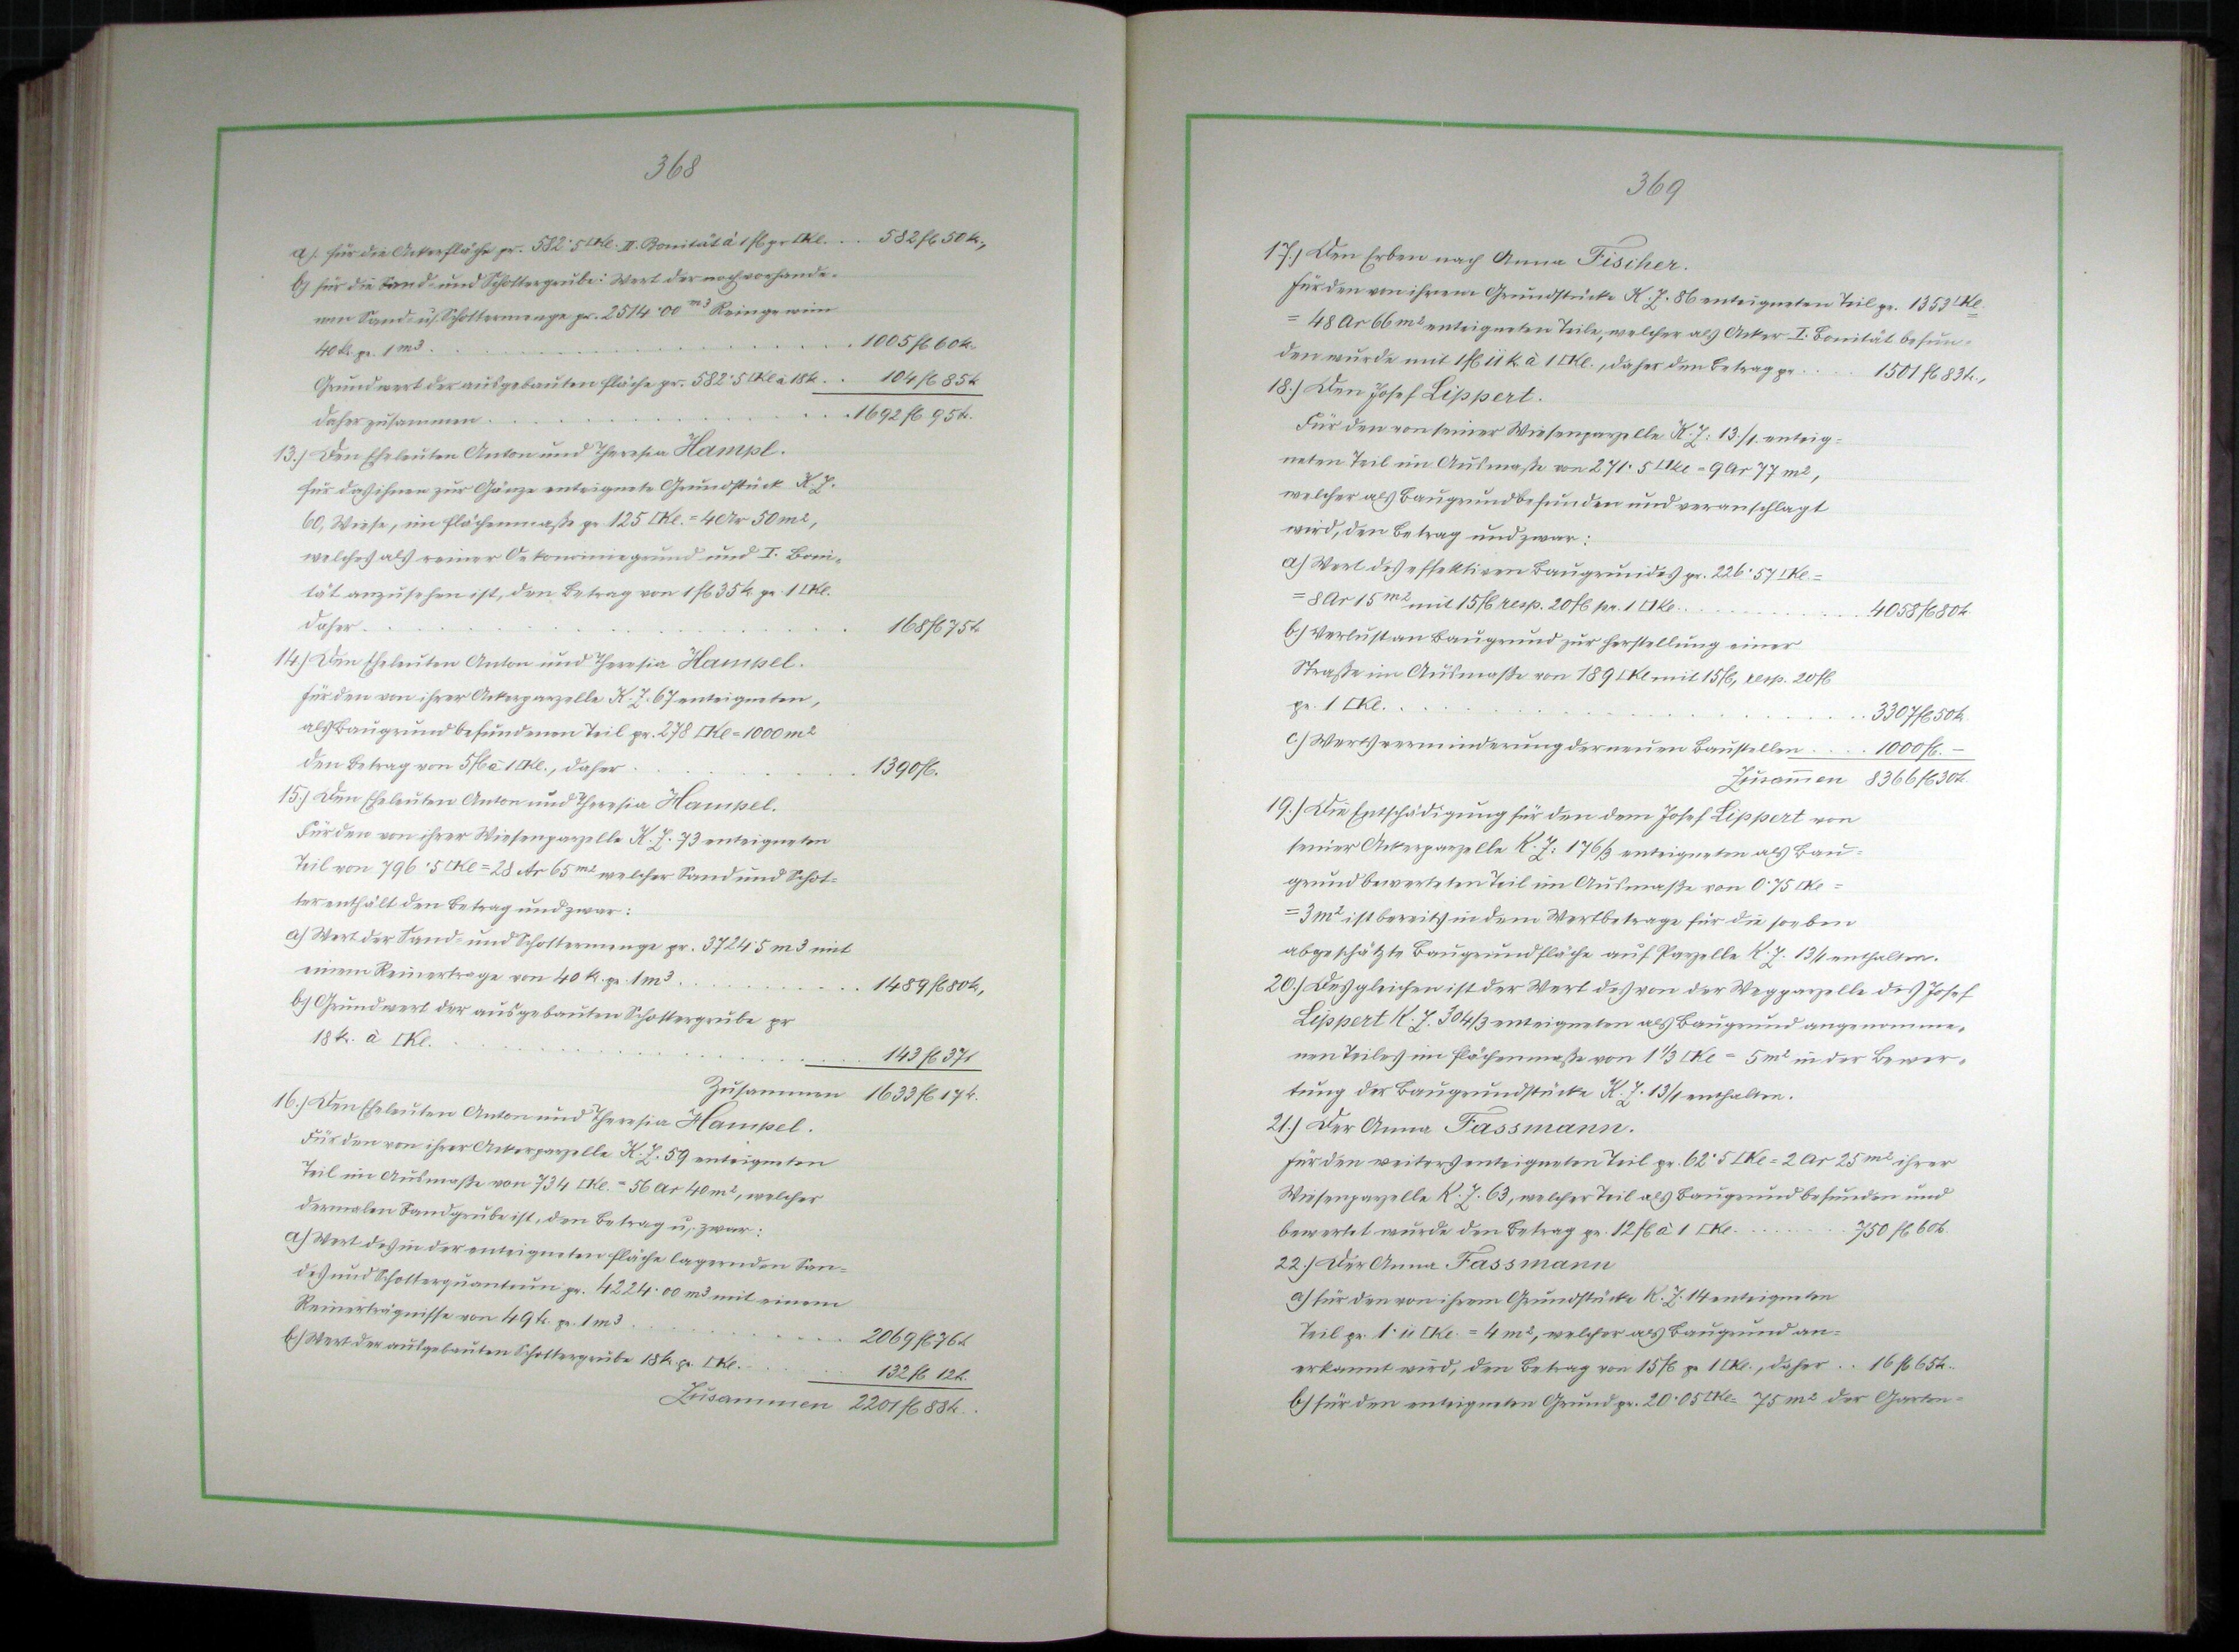 368
a). für die Ackerfläche pr. 582·5 □Kl. II. Bonität à 1 fl pr □Kl. . . . 582 fl 50 k.,
b) für die Sand- und Schottergrube: Wert der noch vorhande-
nen Sand- u. Schottermenge pr. 2514·00 m3 Reingewinn
40 k. pr. 1 m3 . . . . 1005 fl 60 k.
Grundwert der ausgebauten Fläche pr. 582·5 □Kl à 18 k. . . 104 fl 85 k
daher zusammen . . . . 1692 fl 95 k.
13.) Den Eheleuten Anton und Theresia Hampl.
für das ihnen zur Gänze enteignete Grundstück K.Z.
60, Wiese, im Flächenmaße pr 125 □Kl. = 4 Ar 50 m2,
welches als reiner Oekonomiegrund und I. Boni-
tät anzusehen ist, den Betrag von 1 fl 35 k. pr. 1 □Kl.
daher . . . . 168 fl 75 k
14.) Den Eheleuten Anton und Theresia Hampel.
für den von ihrer Ackerparzelle K.Z. 67 enteigneten,
als Baugrund befundenen Teil pr. 278 □Kl = 1000 m2
den Betrag von 5 fl à 1 □Kl., daher . . . . 1390 fl.
15.) Den Eheleuten Anton und Theresia Hampel.
Für den von ihrer Wiesenparzelle K.Z. 73 enteigneten
Teil von 796·5 □Kl = 28 Ar 65 m2 welcher Sand und Schot-
ter enthält den Betrag und zwar:
a) Wert der Sand- und Schottermenge pr. 3724·5 m3 mit
einem Reinertrage von 40 k. pr. 1 m3 . . . . 1489 fl 80 k.,
b) Grundwert der ausgebauten Schottergrube pr
18 k. à □Kl. . . . . 143 fl 37 k
Zusammen 1633 fl 17 k.
16.) Den Eheleuten Anton und Theresia Hampel.
Für den von ihrer Ackerparzelle K.Z. 59 enteigneten
Teil im Ausmaße von 734 □Kl. = 56 Ar 40 m2, welcher
dermalen Sandgrube ist, den Betrag u. zwar:
a) Wert des in der enteigneten Fläche lagernden San-
des und Schotterquantum pr. 4224·00 m3 mit einem
Reinerträgnisse von 49 k. pr. 1 m3 . . . . 2069 fl 76 k
b) Wert der ausgebauten Schottergrube 18 k. pr. □Kl. . . . . 132 fl 12 k.
Zusammen 2201 fl 88 k.
369
17.) Den Erben nach Anna Fischer.
für den von ihrem Grundstücke K.Z. 86 enteigneten Teil pr. 1353 □Kl.
= 48 Ar 66 m2 enteigneten Teile, welcher als Acker I. Bonität befun-
den wurde mit 1 fl 11 k. à 1 □Kl., daher den Betrag pr . . . . 1501 fl 83 k.,
18.) Den Josef Lippert.
Für den von seiner Wiesenparzelle K.Z: 13/1. enteig-
neten Teil im Ausmaße von 271·5 □Kl = 9 Ar 77 m2,
welcher als Baugrund befunden und veranschlagt
wird, den Betrag und zwar:
a) Wert des effektiven Baugrundes pr. 226·57 □Kl =
= 8 Ar 15 m2 mit 15 fl resp. 20 fl pr. 1 □Kl . . . . 4058 fl 80 k
b) Verlust an Baugrund zur Herstellung einer
Straße im Ausmaße von 189 □Kl mit 15 fl, resp. 20 fl
pr. 1 □Kl. . . . . 3307 fl 50 k.
c) Wertsverminderung der neuen Baustellen . . . . 1000 fl. —
Zusam̅en 8366 fl 30 k.
19.) Die Entschädigung für den dem Josef Lippert von
seiner Ackerparzelle K.Z: 176/3 enteigneten als Bau-
grund bewerteten Teil im Ausmaße von 0·75 □Kl =
= 3 m2 ist bereits in dem Wertbetrage für die soeben
abgeschätzte Baugrundfläche auf Parzelle K.Z. 13/1 enthalten.
20.) Desgleichen ist der Wert des von der Wegparzelle des Josef
Lippert K.Z. 304/3 enteigneten als Baugrund angenomme-
nen Teiles im Flächenmaße von 1 1/3 □Kl = 5 m2 in der Bewer-
tung der Baugrundstücke K.Z. 13/1 enthalten.
21.) Der Anna Fassmann.
für den weiters enteigneten Teil pr. 62·5 □Kl = 2 Ar 25 m2 ihrer
Wiesenparzelle K.Z. 63, welcher Teil als Baugrund befunden und
bewertet wurde den Betrag pr. 12 fl à 1 □Kl . . . . 750 fl 60 k.
22.) Der Anna Fassmann
a) für den von ihrem Grundstücke K.Z. 14 enteigneten
Teil pr. 1·11 □Kl. = 4 m2, welcher als Baugrund an-
erkannt wird, den Betrag von 15 fl pr 1 □Kl., daher . . 16 fl 65 k.
b) für den enteigneten Grund pr. 20·05 □Kl = 75 m2 der Garten-